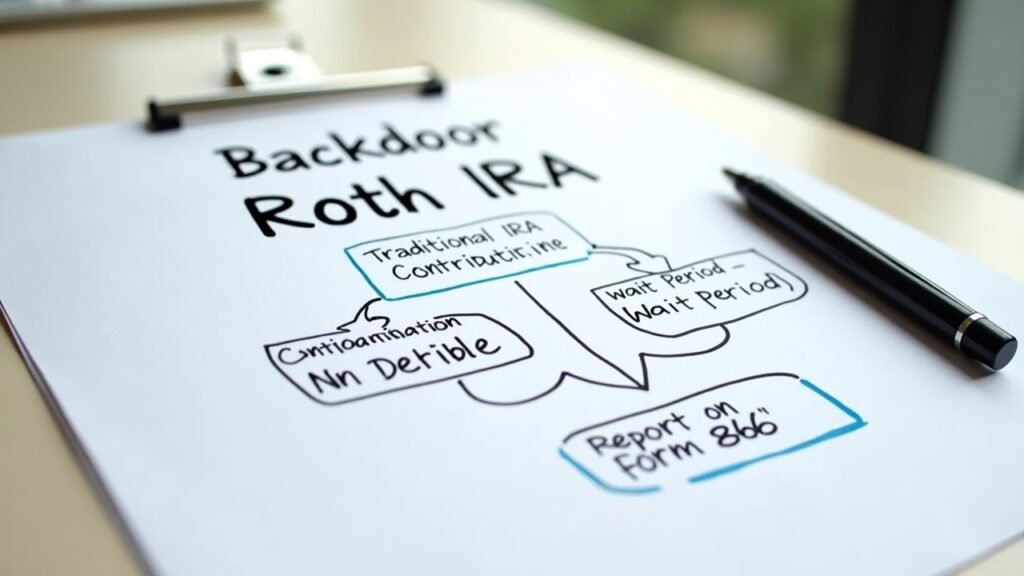 Backdoor
Roth IRA
Traditional IRA
Contributir.ine
wait Period –
Wait Period)
Cntioamination
Nn Detrible
Report on
Form 866"